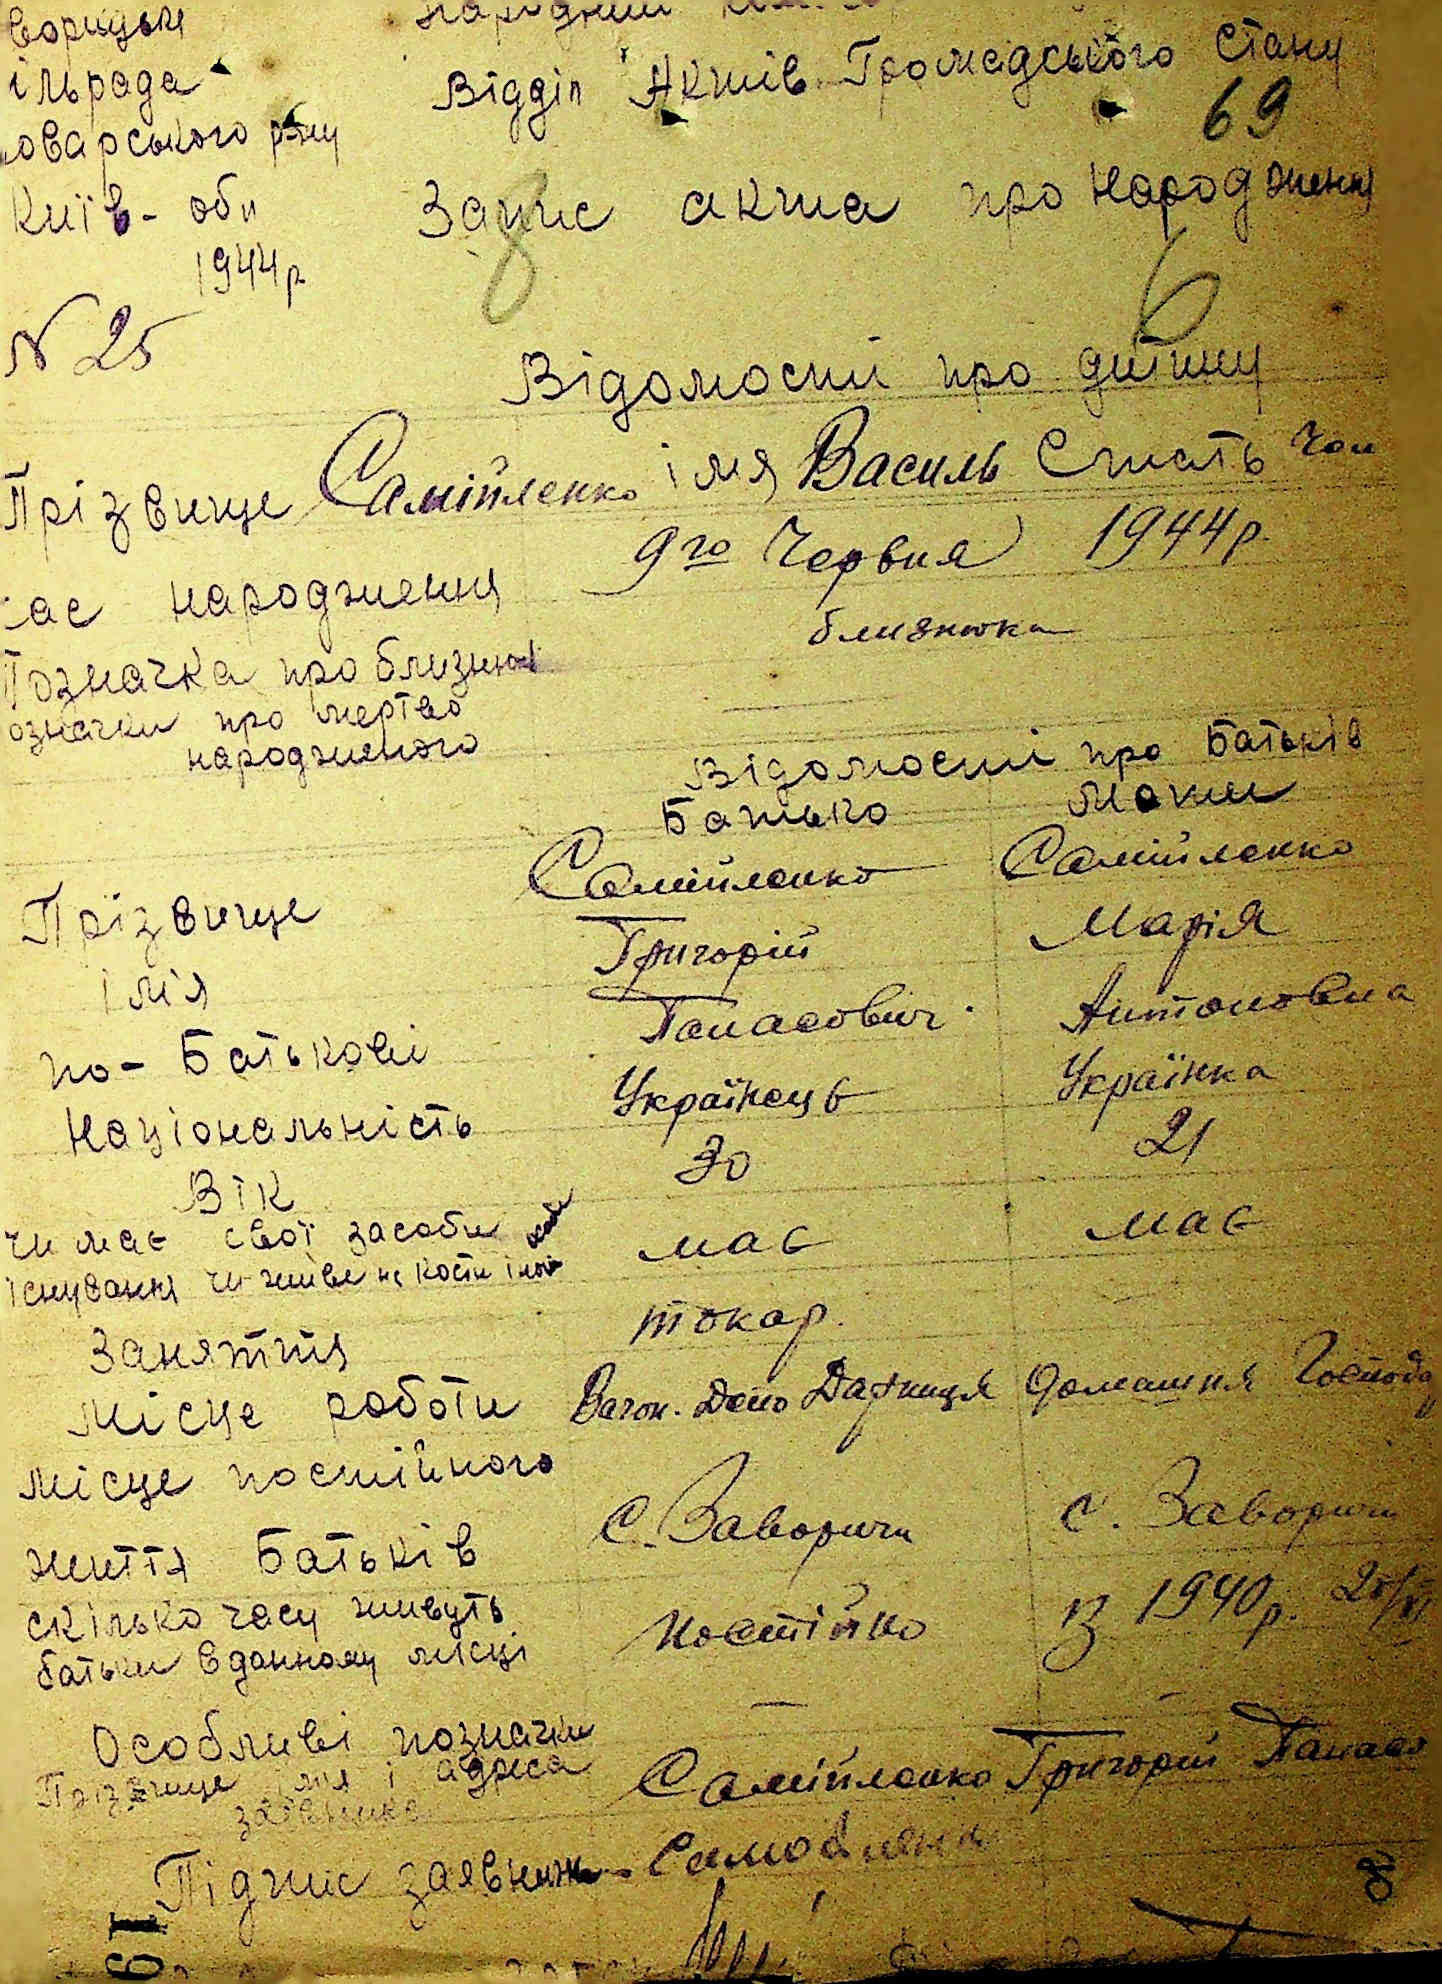 Відділ Актів Громадського Стану
ільрада
оварського р-ну
69
Київ- обл
Запис акта про народження
8
1944 р
6
N 25
Відомости про дитину
Прізвище Самійленко імя Василь Стать Чол
час народження 9го Червня 1944 р.
Позначка про близнюк близнюка
означки про мертво
народженого
Відомости про Батьків
Батько мати
Прізвище Самійленко Самійленко
ім'я Григорій Марія
по- Батькові Панасович Антоновна
Національність Українець Українка
Вік 30 21
чи має свої засоби має має
існування чи живе на кошти
Заняття токар.
місце роботи Вагон. Депо Дарниця домашня Господ
місце постійного
життя Батьків с. Заворичі с. Заворичі
скілько часу живуть
батьки в данному місці постійно З 1940 р. 25/VI
Особливі позначки
Прізвище імя і адреса Самійленко Григорій Панасо
заявника
Підпис заявника - Самойленко
19